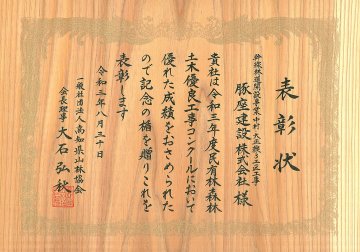 表彰状
幹線林道開設事業中村大正線3工区工事
豚座建設株式会社 様
貴社は令和三年度民有林森林
土木優良工事コンクールにおいて
優れた成績をおさめられた
ので記念の楯を贈りこれを
表彰します
令和三年八月三十日
一般社団法人高知県山林協会
会長理事 大石弘秋